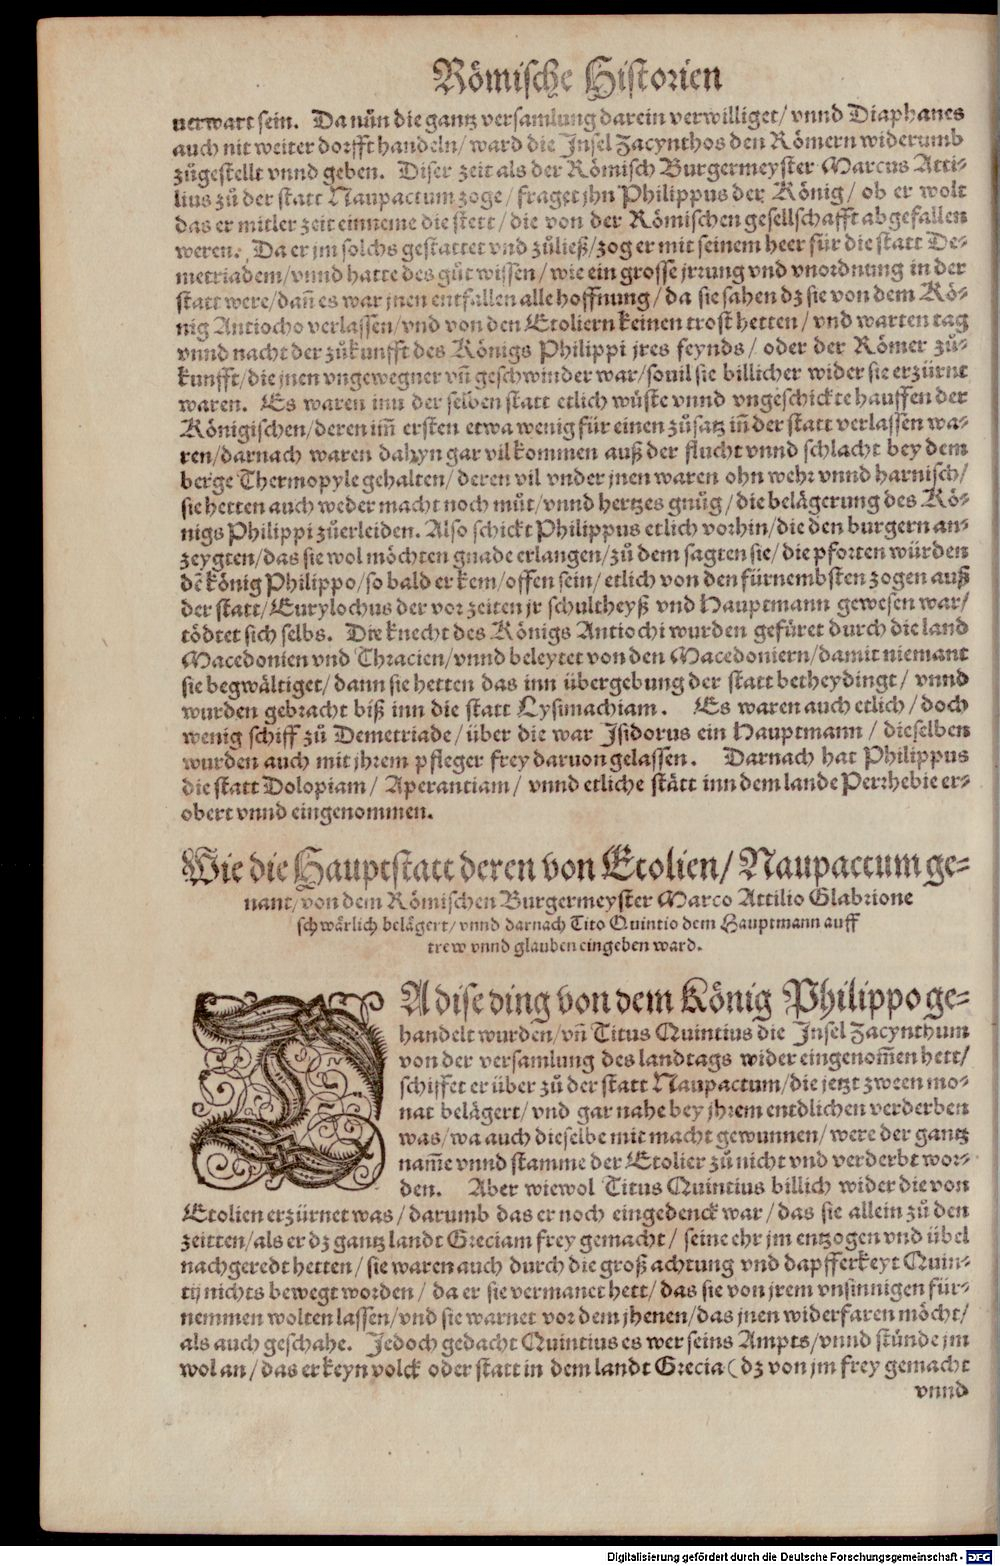 Römische Historien
uerwart sein. Da nůn die gantz versamlung darein verwilliget/ vnnd Diaphanes
auch nit weiter dorfft handeln/ ward die Jnsel Zacynthos den Römern widerumb
zůgestellt vnnd geben. Diser zeit als der Römisch Burgermeyster Marcus Atti-
lius zů der statt Naupactum zoge/ fraget jhn Philippus der König/ ob er wolt
das er mitler zeit einneme die stett/ die von der Römischen gesellschafft abgefallen
weren. Da er jm solchs gestattet vnd zůließ/ zog er mit seinem heer für die statt De-
metriadem/ vnnd hatte des gůt wissen/ wie ein grosse jrrung vnd vnordnung in der
statt were/ dañ es war jnen entfallen alle hoffnung/ da sie sahen dz sie von dem Kö-
nig Antiocho verlassen/ vnd von den Etoliern keinen trost hetten/ vnd warten tag
vnnd nacht der zůkunfft des Königs Philippi jres feynds/ oder der Römer zů-
kunfft/ die jnen vngewegner vñ geschwinder war/ souil sie billicher wider sie erzürnt
waren. Es waren inn der selben statt etlich wüste vnnd vngeschickte hauffen der
Königischen/ deren im̃ ersten etwa wenig für einen zůsatz iñ der statt verlassen wa-
ren/ darnach waren dahyn gar vil kommen auß der flucht vnnd schlacht bey dem
berge Thermopyle gehalten/ deren vil vnder jnen waren ohn wehr vnnd harnisch/
sie hetten auch weder macht noch můt/ vnnd hertzes gnůg/ die belägerung des Kö-
nigs Philippi zůerleiden. Also schickt Philippus etlich vorhin/ die den burgern an-
zeygten/ das sie wol möchten gnade erlangen/ zů dem sagten sie/ die pforten würden
dẽ könig Philippo/ so bald er kem/ offen sein/ etlich von den fürnembsten zogen auß
der statt/ Eurylochus der vor zeiten jr schultheyß vnd Hauptmann gewesen war/
tödtet sich selbs. Die knecht des Königs Antiochi wurden gefüret durch die land
Macedonien vnd Thracien/ vnnd beleytet von den Macedoniern/ damit niemant
sie begwältiget/ dann sie hetten das inn übergebung der statt betheydingt/ vnnd
wurden gebracht biß inn die statt Lysimachiam. Es waren auch etlich/ doch
wenig schiff zů Demetriade/ über die war Jsidorus ein Hauptmann/ dieselben
wurden auch mit jhrem pfleger frey daruon gelassen. Darnach hat Philippus
die statt Dolopiam/ Aperantiam/ vnnd etliche stätt inn dem lande Perrhebie er-
obert vnnd eingenommen.
Wie die Hauptstatt deren von Etolien/ Naupactum ge-
nant/ von dem Römischen Burgermeyster Marco Attilio Glabrione
schwärlich belägert/ vnnd darnach Tito Quintio dem Hauptmann auff
trew vnnd glauben eingeben ward.
DA dise ding von dem König Philippo ge-
handelt wurden/ vñ Titus Quintius die Jnsel Zacynthum
von der versamlung des landtags wider eingenom̃en hett/
schiffet er über zů der statt Naupactum/ die jetzt zwen mo-
nat belägert/ vnd gar nahe bey jhrem entdlichen verderben
was/ wa auch dieselbe mit macht gewunnen/ were der gantz
nam̃e vnnd stamme der Etolier zů nicht vnd verderbt wor-
den. Aber wiewol Titus Quintius billich wider die von
Etolien erzürnet was/ darumb das er noch eingedenck war/ das sie allein zů den
zeitten/ als er dz gantz landt Greciam frey gemacht/ seine ehr jm entzogen vnd übel
nachgeredt hetten/ sie waren auch durch die groß achtung vnd dapfferkeyt Quin-
tij nichts bewegt worden/ da er sie vermanet hett/ das sie von jrem vnsinnigen für-
nemmen wolten lassen/ vnd sie warnet vor dem jhenen/ das jnen widerfaren möcht/
als auch geschahe. Jedoch gedacht Quintius es wer seins Ampts/ vnnd stünde jm
wol an/ das er keyn volck oder statt in dem landt Grecia (dz von jm frey gemacht
vnnd
Digitalisierung gefördert durch die Deutsche Forschungsgemeinschaft - DFG